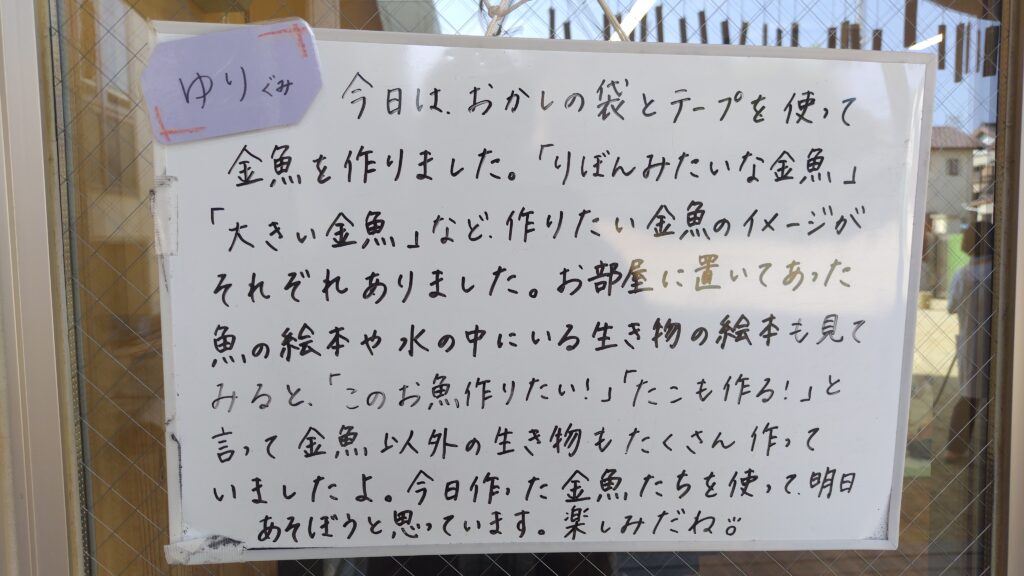 ゆりぐみ
今日は、おかしの袋とテープを使って
金魚を作りました。「りぼんみたいな金魚」
「大きい金魚」など、作りたい金魚のイメージが
それぞれありました。お部屋に置いてあった
魚の絵本や水の中にいる生き物の絵本も見て
みると、「このお魚作りたい!」「たこも作る!」と
言って金魚以外の生き物もたくさん作って
いましたよ。今日作った金魚たちを使って、明日
あそぼうと思っています。楽しみだね。